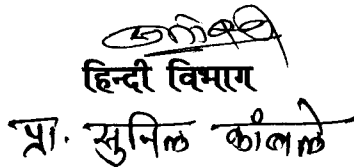 हिन्दी विभाग
प्रा. सुनिल कांबले